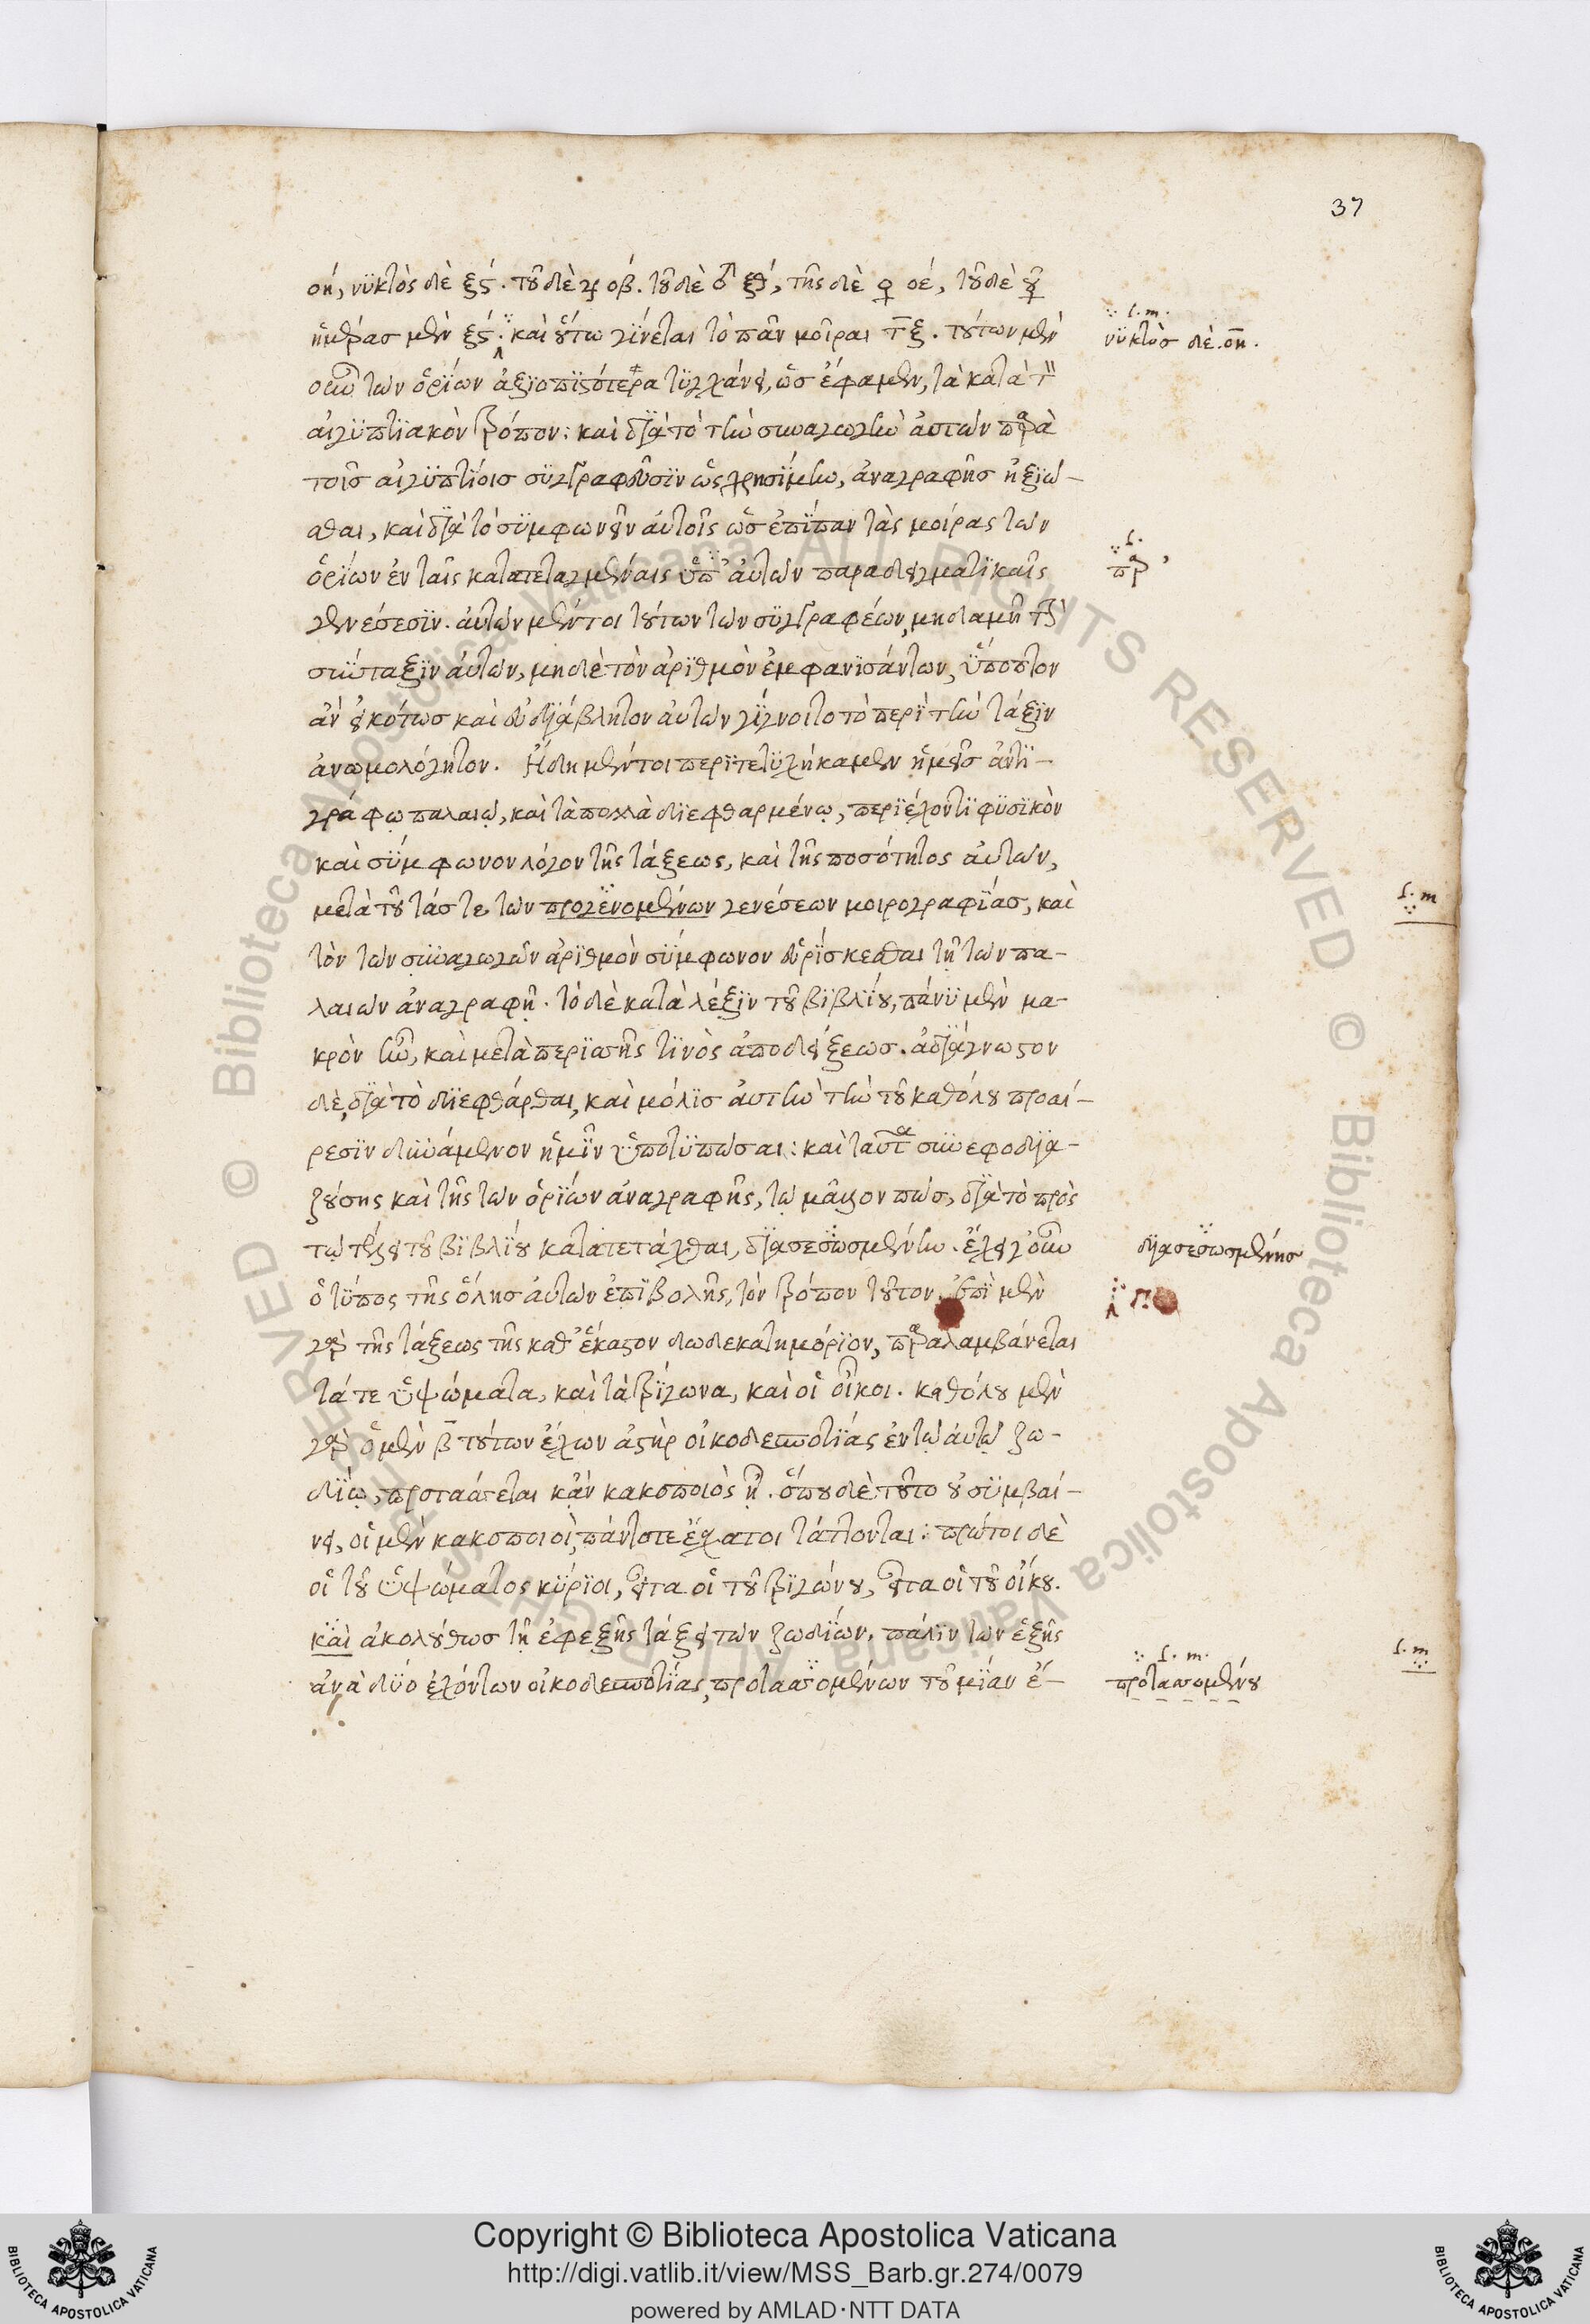 37
οή, νϋκτὸς δὲ ξς΄. τοῦ δὲ ♃ οβ΄. τοῦ δὲ ♂ ξθ΄, τῆς δὲ ♀ οέ, τοῦ δὲ ☿
ἡμέρασ μὲν ξς΄. καὶ οὕτω γϊνεται τὸ πᾶν μοῖραι τ̅ξ̅. τούτων μὲν
οὖν τῶν ὁρΐων ἀξϊοπϊστότερα τϋγχάνει, ὥσ ἔφαμεν, τὰ κατὰ τὸν
αιγϋπτϊακὸν τρόπον: καὶ δϊὰ τὸ τὴν συναγωγὴν ἀυτῶν παρὰ
τοῖσ αἰγϋπτΐοισ συγγραφεῦσϊν ὡς χρησΐμην, ἀναγραφῆσ ἠξϊῶ-
σθαι, καὶ δϊὰ τὸ σϋμφωνεῖν ἀυτοῖς ὡσ ἐπΐπαν τὰς μοίρας τῶν
ὁρΐων ἐν ταῖς κατατεταγμέναις ὑπ' ἀυτῶν παραδειγματϊκαῖς
γενέσεσϊν. ἀυτῶν μέντοι τούτων τῶν σϋγγραφέων, μηδαμῆ τὴν
σύνταξϊν ἀυτῶν, μηδὲ τὸν ἀρϊθμὸν ἐμφανϊσάντων, ὕποπτον
ἀν εἰκότωσ καὶ ἐυδϊάβλητον ἀυτῶν γΐγνοιτο τὸ περὶ τὴν τάξϊν
ἀνωμολόγητον. Ἤδη μέντοι περϊτετϋχήκαμεν ἡμεῖσ ἀντϊ-
γράφῳ παλαιῷ, καὶ τὰ πολλὰ δϊεφθαρμένῳ, περϊέχοντϊ φϋσϊκὸν
καὶ σΰμφωνον λόγον τῆς τάξεως, καὶ τῆς ποσότητος ἀυτῶν,
μετὰ τοῦ τάς τε τῶν προγενομένων γενέσεων μοιρογραφΐάσ, καὶ
τὸν τῶν συναγωγῶν ἀρϊθμὸν σΰμφωνον εὑρΐσκεσθαι τῇ τῶν πα-
λαιῶν ἀναγραφῇ. τὸ δὲ κατὰ λέξϊν τοῦ βϊβλΐου, πάνϋ μὲν μα-
κρὸν ἦν, καὶ μετὰ περϊσσῆς τϊνὸς ἀποδείξεωσ. ἀδϊάγνωστον
δὲ, δϊὰ τὸ δϊεφθάρθαι, καὶ μόλϊσ ἀυτὴν τὴν τοῦ καθόλου προαί-
ρεσϊν δυνάμενον ἡμῖν ὑποτϋπῶσαι: καὶ ταῦτα συνεφοδϊα-
ζούσης καὶ τῆς τῶν ὁρΐων ἀναγραφῆς, τῳ μᾶλλον πώσ, δϊὰ τὸ πρὸς
τῷ τέλει τοῦ βϊβλΐου κατατετάχθαι, δϊασεσωσμένην. ἔχει γοῦν
ὁ τΰπος τῆς ὅλησ ἀυτῶν ἐπϊβολῆς, τὸν τρόπον τοῦτον. ἐπὶ μὲν
γὰρ τῆς τάξεως τῆς καθ' ἕκαστον δωδεκατημόρϊον, παραλαμβάνεται
τά τε ὑψώματα, καὶ τὰ τρΐγωνα, καὶ οἱ οἶκοι. καθόλου μὲν
γὰρ ὁ μὲν β̅ τούτων ἔχων ἀστὴρ οἰκοδεσποτϊάς ἐν τῷ ἀυτῷ ζω-
δΐῳ, προτάσσεται κᾀν κακοποιὸς ᾖ. ὅπου δὲ τοῦτο οὐ σϋμβαί-
νει, οἱ μὲν κακοποιοὶ, πάντοτε ἔσχατοι τάττονται: πρῶτοι δὲ
οἱ τοῦ ὑψώματος κΰρϊοι, εἶτα οἱ τοῦ τρϊγώνου, εἶτα οἱ τοῦ οἴκου.
καὶ ἀκολούθωσ τῇ ἐφεξῆς τάξει τῶν ζωδΐων, πάλϊν τῶν ἑξῆς
ἀνὰ δΰο ἐχόντων οἰκοδεσποτΐας, προτασσομένων τοῦ μΐαν ἔ-
f. m.
νϋκτὸσ δὲ. ο̅η̅.
f.
πρ'
f. m
δϊασεσωσμένησ
f. m.
προτασσομένου
f. m
© Biblioteca Apostolica Vaticana ALL RIGHTS RESERVED © Biblioteca Apostolica Vaticana ALL RIGHTS RESERVED
Copyright © Biblioteca Apostolica Vaticana
http://digi.vatlib.it/view/MSS_Barb.gr.274/0079
powered by AMLAD·NTT DATA
BIBLIOTECA APOSTOLICA VATICANA
BIBLIOTECA APOSTOLICA VATICANA